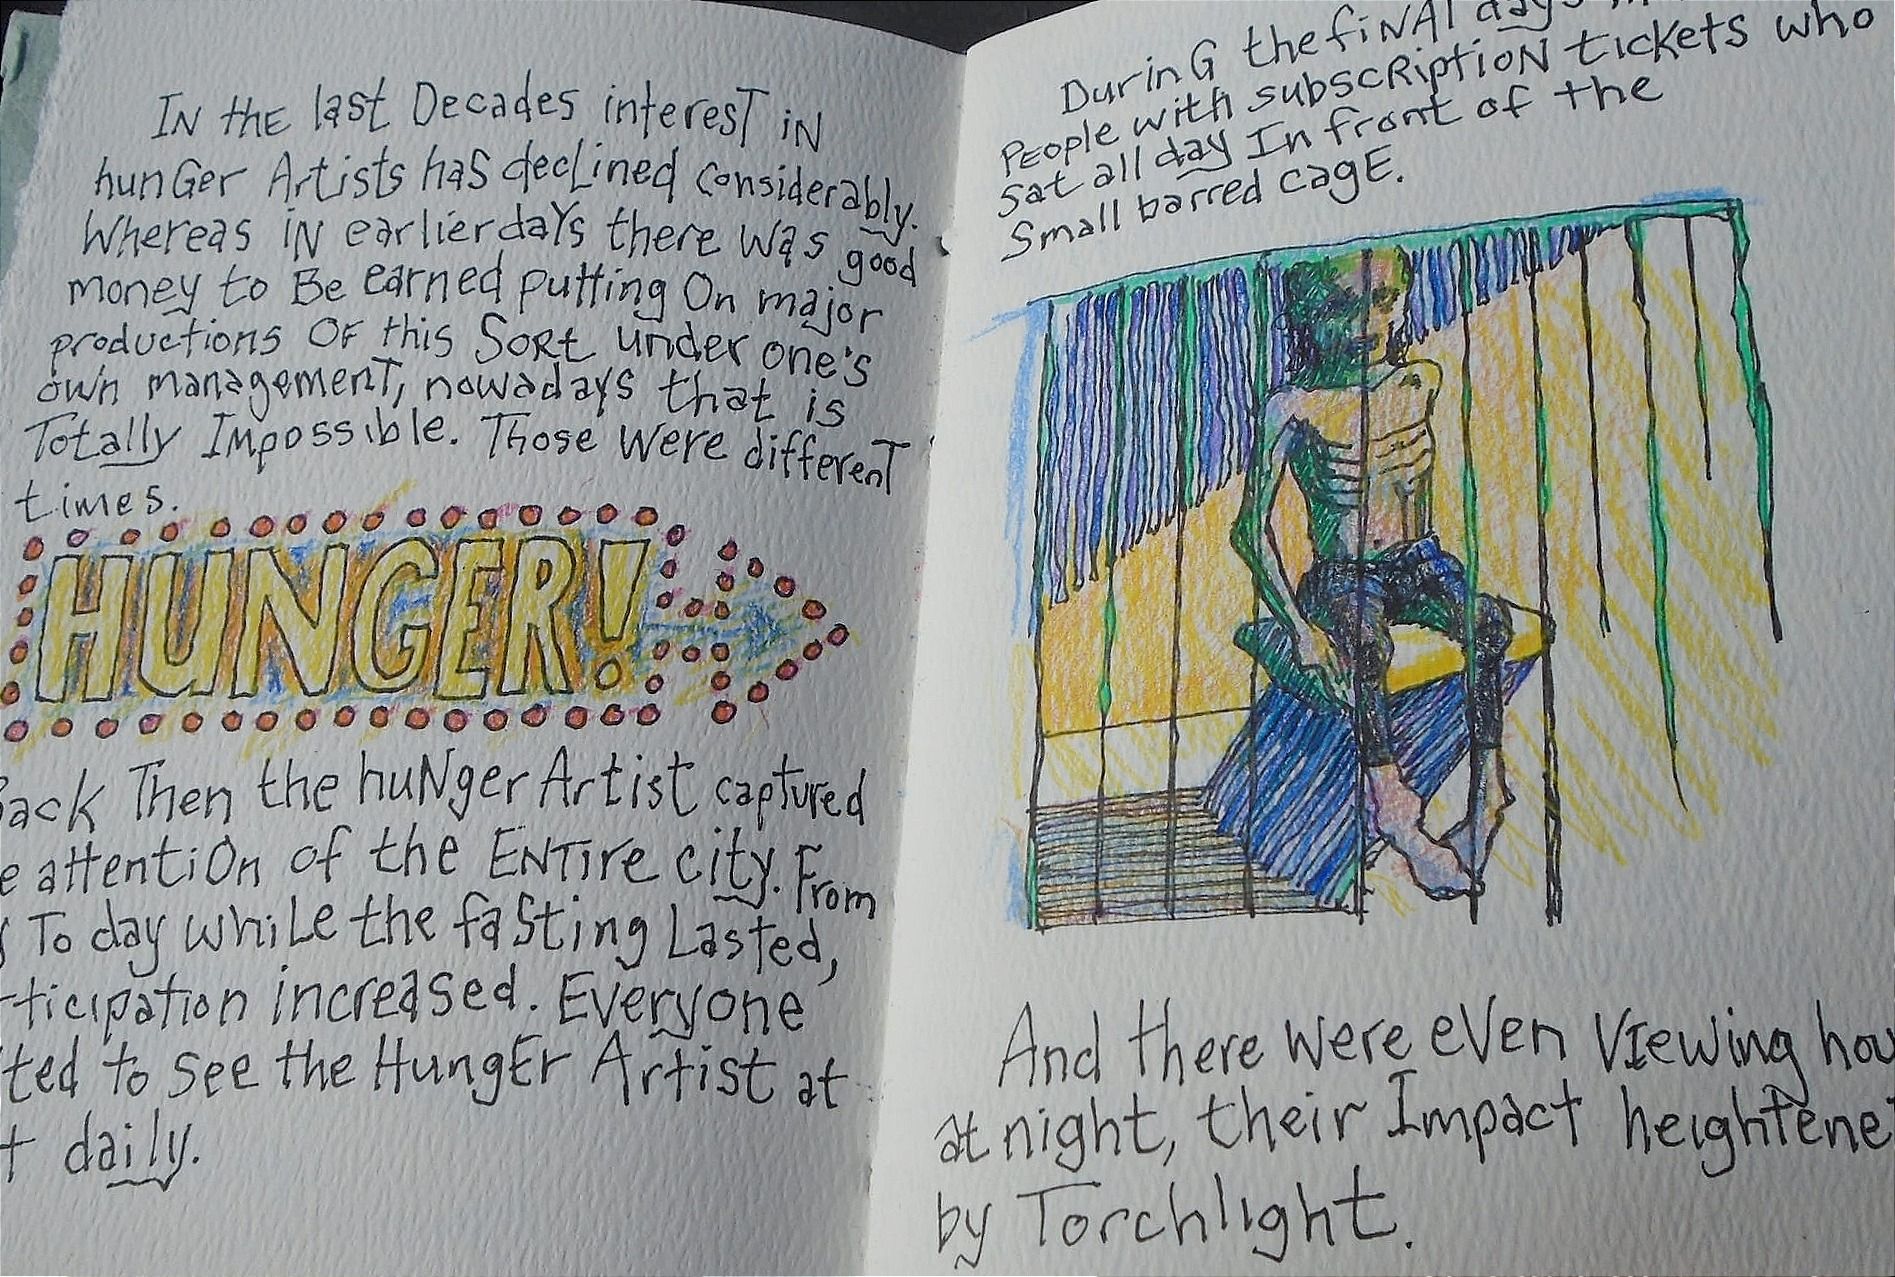 IN tHE last Decades interesT iN
hunGer Artists has decLined considerably.
Whereas iN earlier days there was good
money to Be earned putting On major
productions OF this SoRt under one's
own managemenT, nowadays that is
Totally Impossible. Those were differenT
times.
HUNGER!
Back Then the huNger Artist captured
attentiOn of the ENTire city. From
To day whiLe the faSting Lasted,
increased. Everyone
to see the HungEr Artist at
daily.
DurinG the fiNAl days
PEople with subscRiptioN tickets who
sat all day In front of the
Small barred cagE.
And there were eVen VIewing
at night, their Impact
by Torchlight.